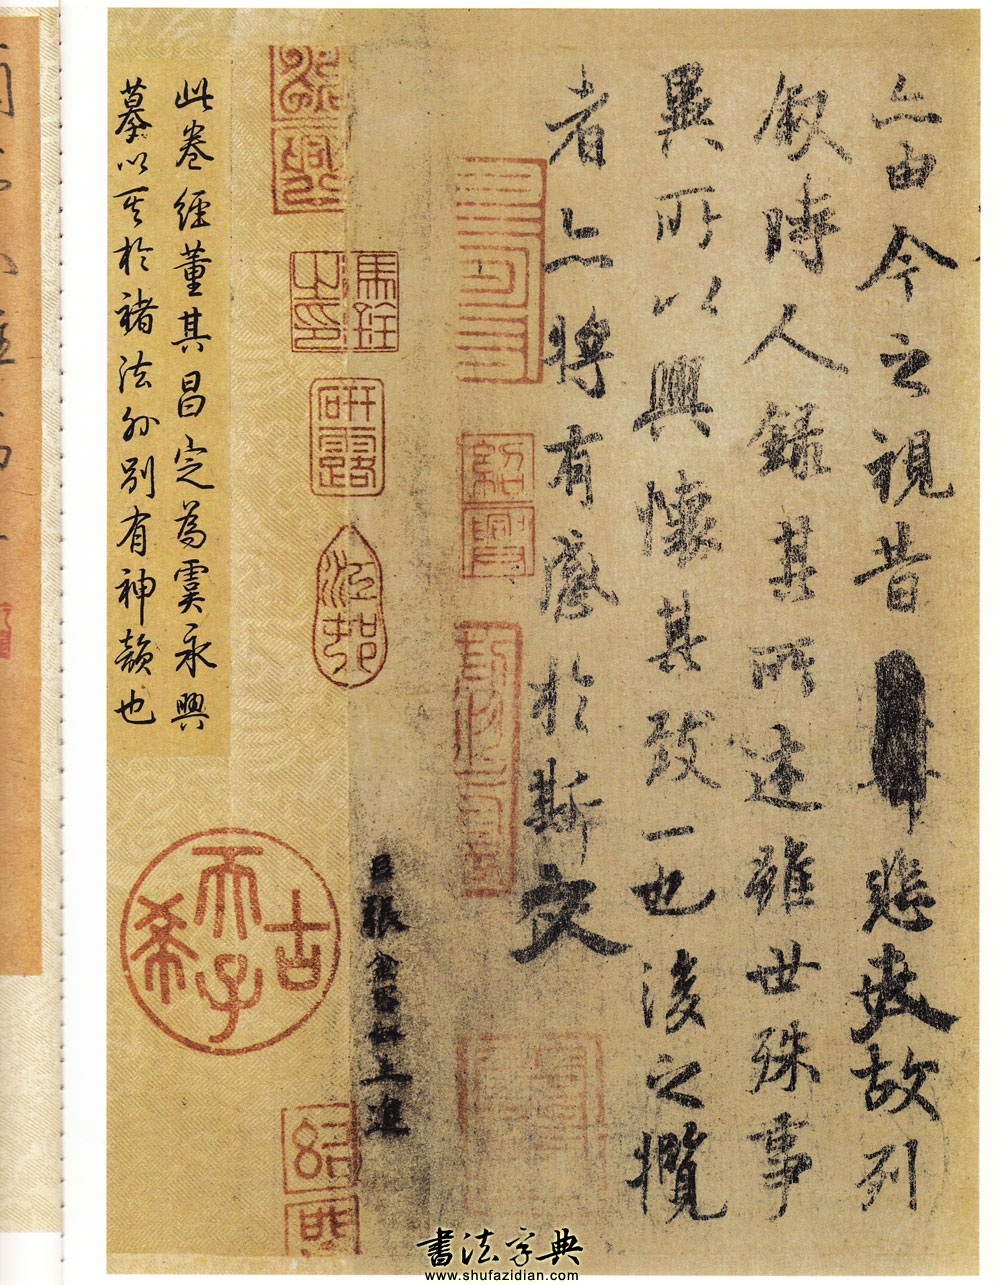 亦由今之視昔悲夫故列
敘時人錄其所述雖世殊事
異所以興懷其致一也後之攬
者亦將有感於斯文
張金界奴上進
此卷經董其昌定為虞永興
摹以其於褚法外別有神韻也
馬銓之印
研露
紹興
古希天子
書法字典
www.shufazidian.com